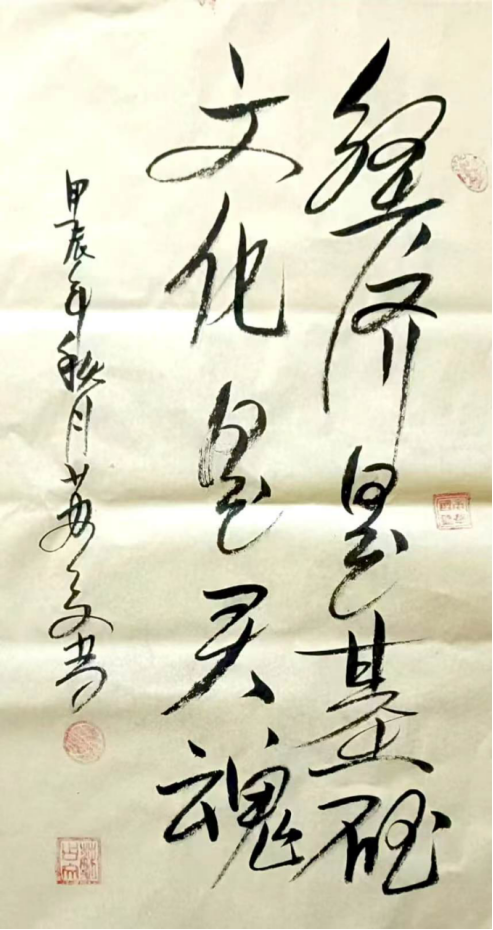 经济是基础
文化是灵魂
甲辰年秋月 书